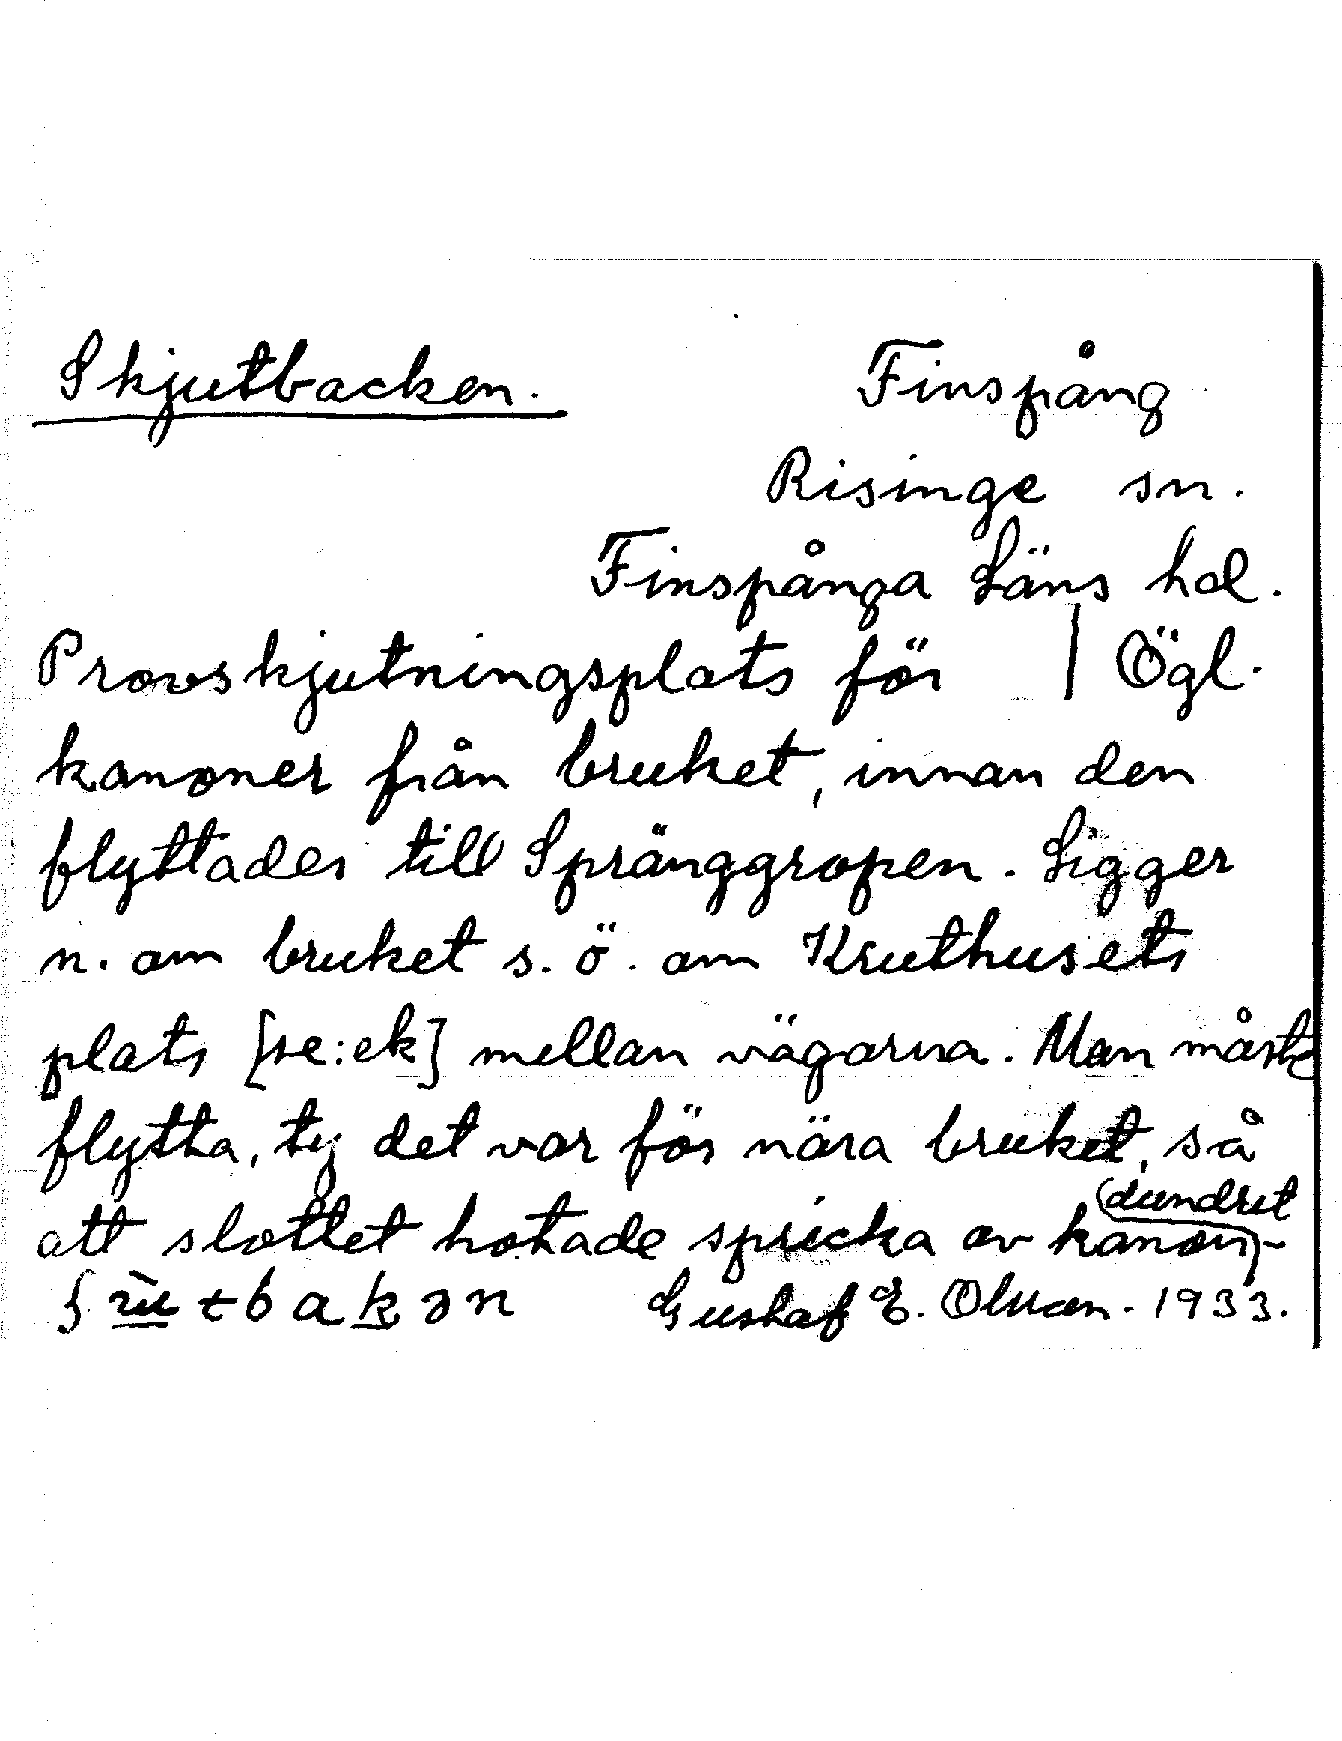 Skjutbacken. Finspång
Risinge sn.
Finspånga Läns hd.
Provskjutningsplats för | Ögl.
kanoner från bruket, innan den
flyttades till Spränggropen. Ligger
n. om bruket s. ö. om Kruthusets
plats [se: ek] mellan vägarna. Man måste
flytta, ty det var för nära bruket, så
att slottet hotade spricka av kanon-
dundret
Gustaf E. Olsson. 1933.